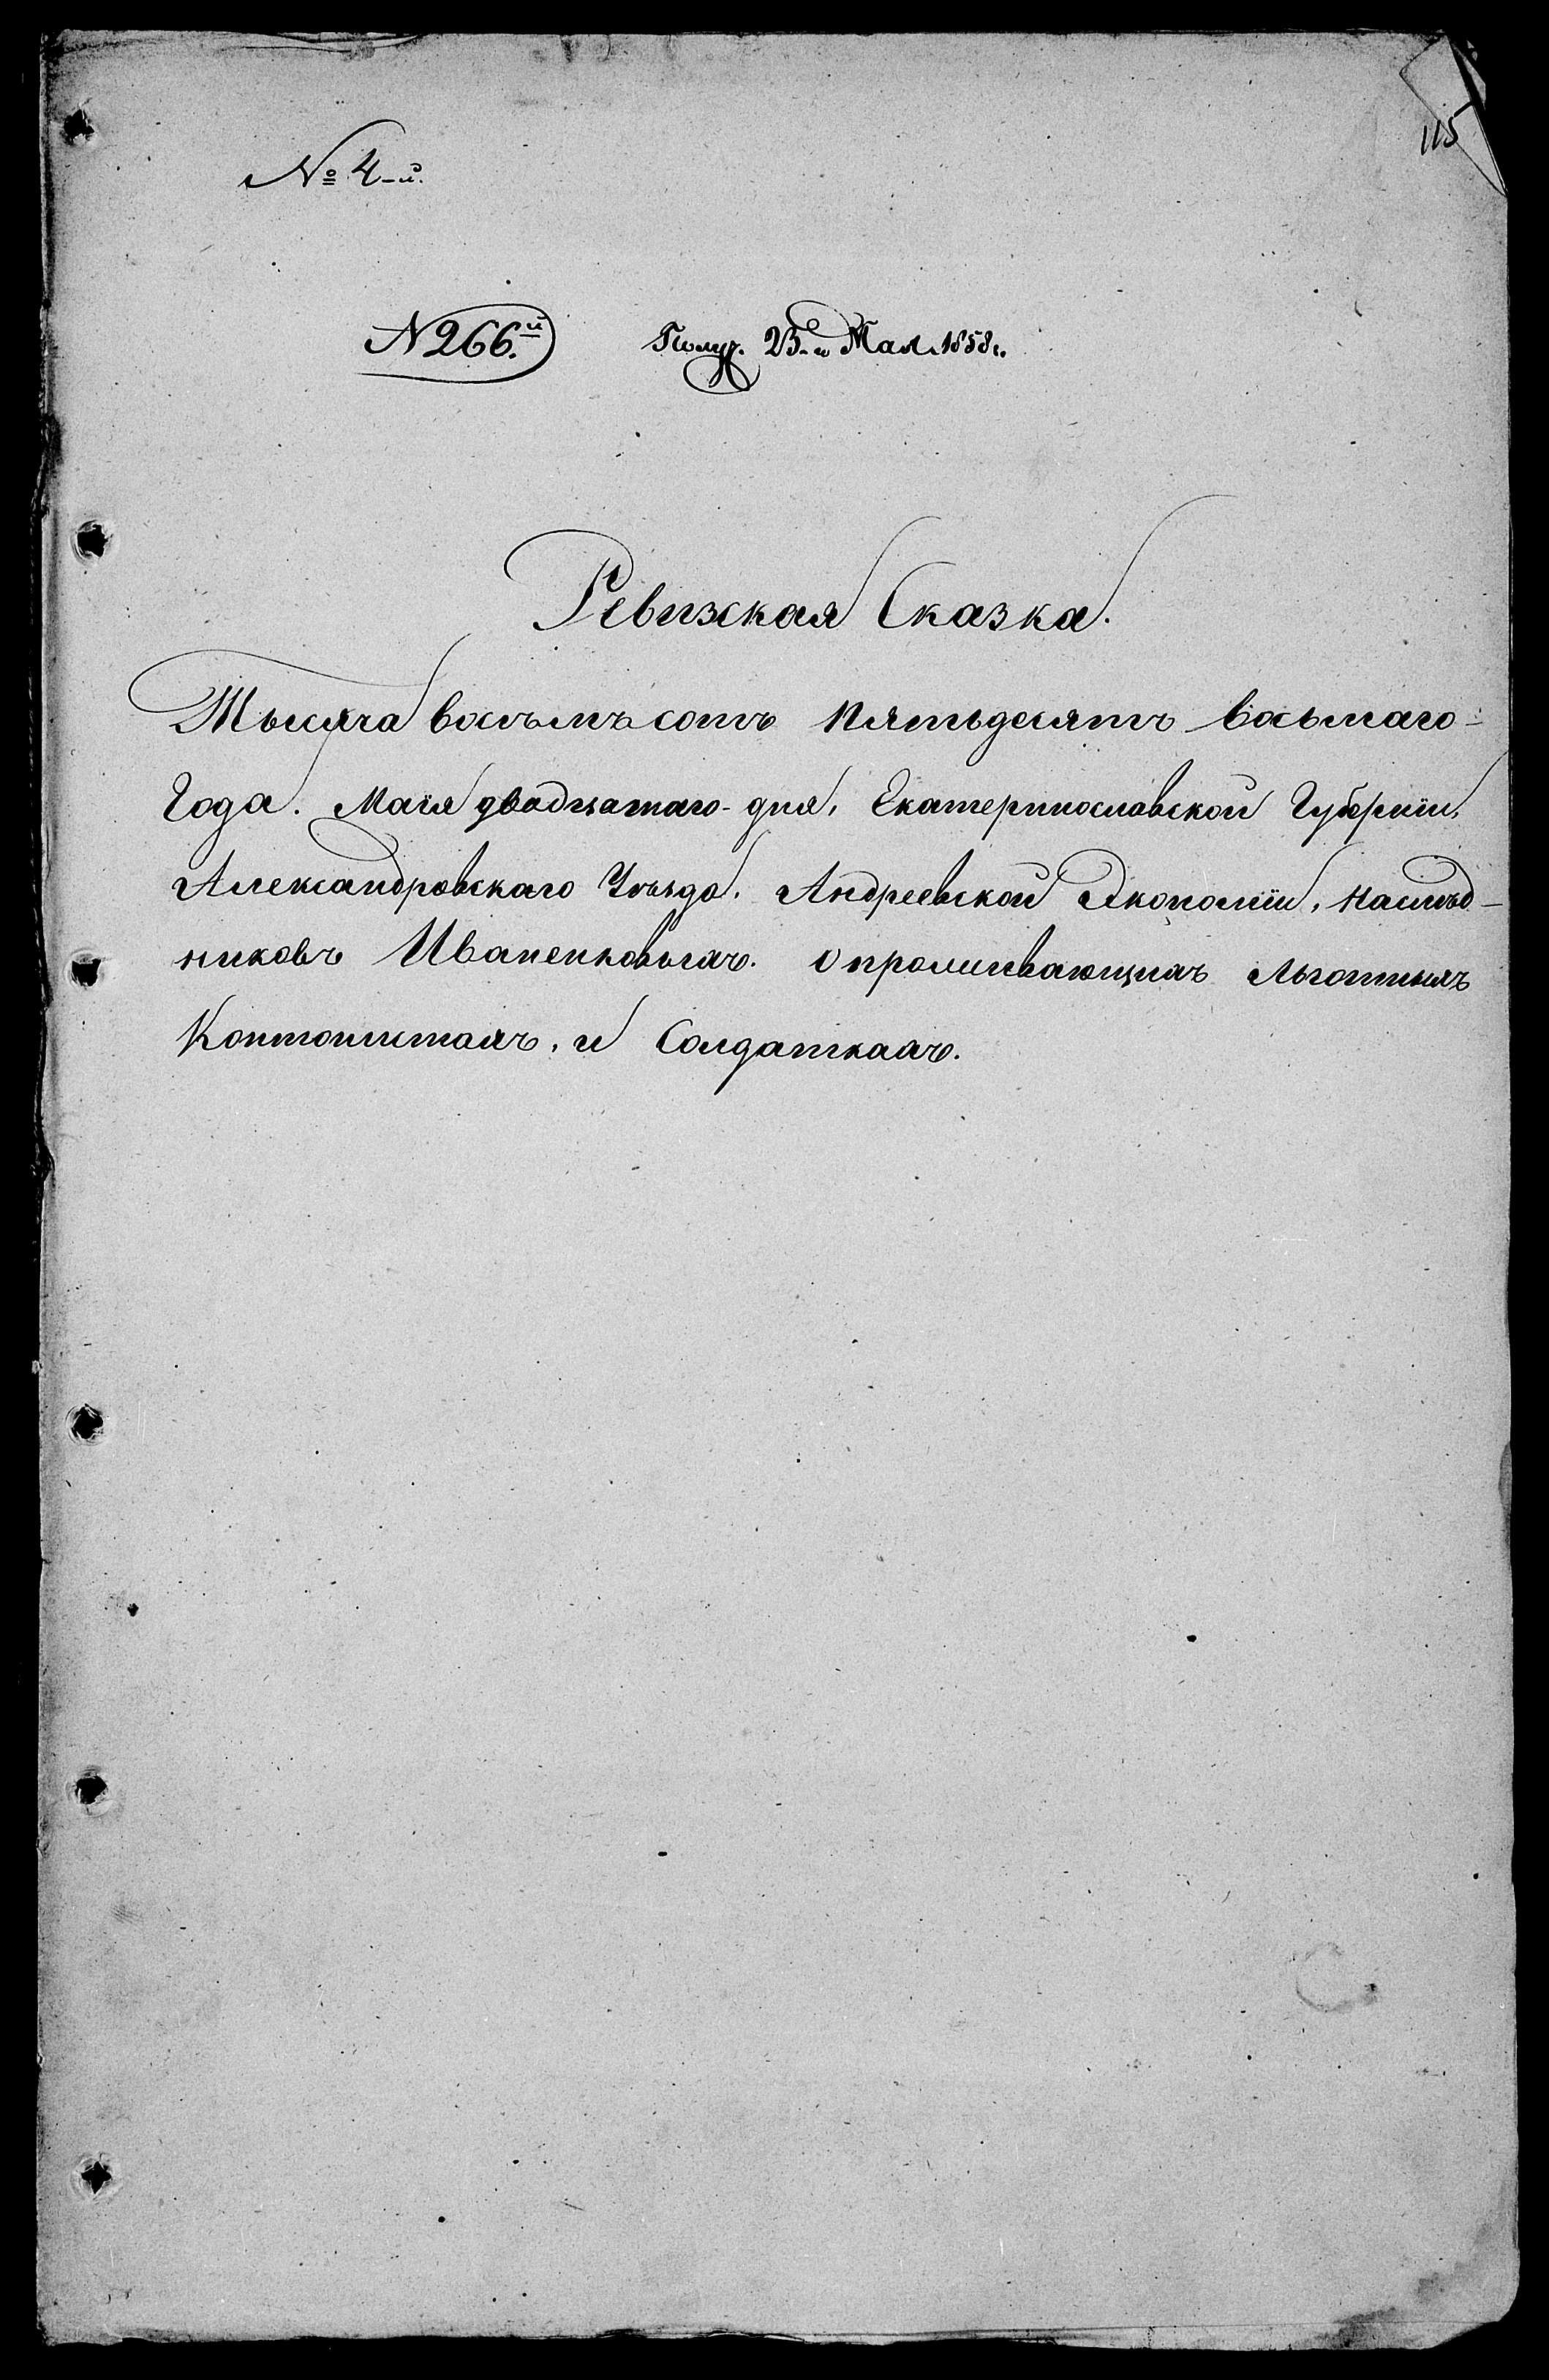 115
№ 4-й.
N 266.й Получ. 23-го Мая 1858 г.
Ревизская Сказка.
Тысяча восемъ сотъ пятьдесятъ восьмаго
Года. Маія двадцатаго дня, Екатеринославской Губерніи,
Александровскаго Уѣзда. Андреевской Экономіи, наслѣд-
никовъ Иваненковыхъ. О проживающихъ льготныхъ
Контонистахъ, и Солдаткахъ.